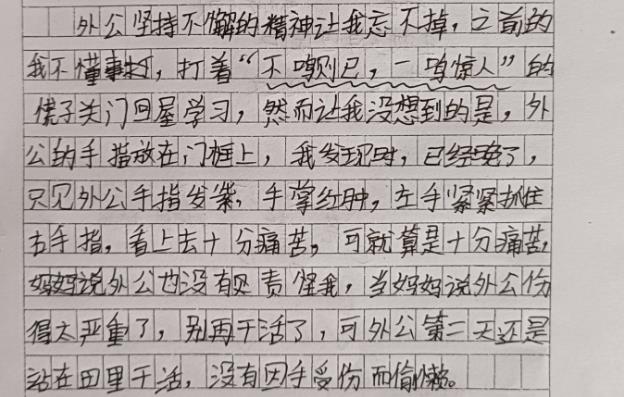 外公坚持不懈的精神让我忘不掉，之前的
我不懂事，打着“不鸣则已，一鸣惊人”的
子关门回屋学习，然而让我没想到的是，外
公的手指放在门框上，我发现时，已经晚了，
只见外公手指发紫，手掌红肿，左手紧紧抓住
右手指，看上去十分痛苦，可就算是十分痛苦，
妈妈说外公也没有责怪我，当妈妈说外公伤
得太严重了，别再干活了，可外公第二天还是
站在田里干活，没有因手受伤而偷懒。